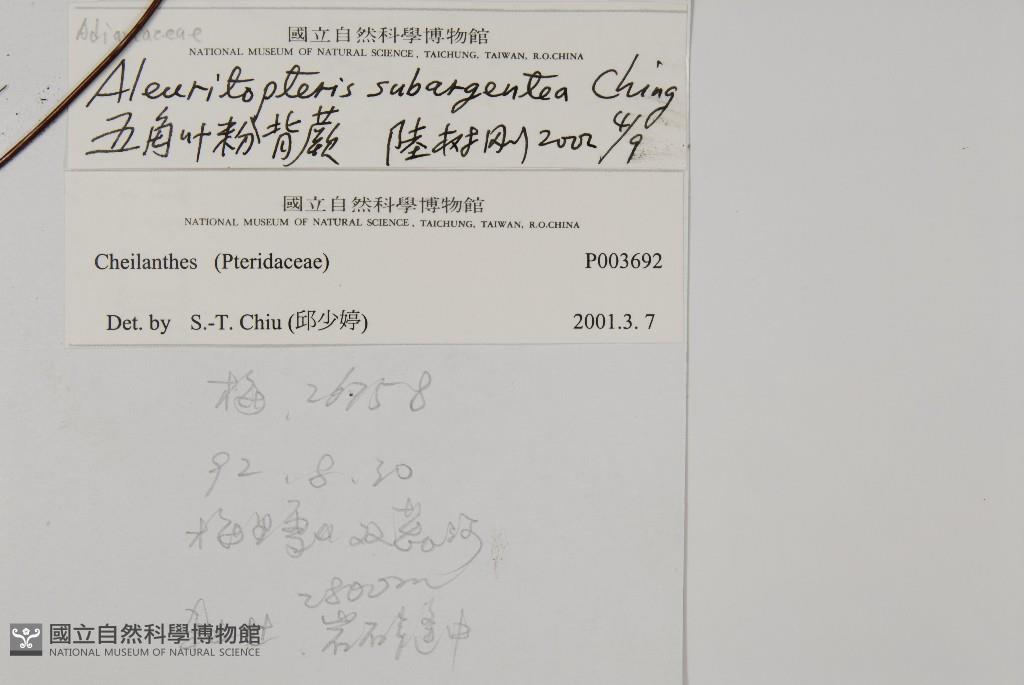 Adiantaceae
國立自然科學博物館
NATIONAL MUSEUM OF NATURAL SCIENCE, TAICHUNG, TAIWAN, R.O.CHINA
Aleuritopteris subargentea Ching
五角叶粉背蕨 陸树刚 2002 4/9
國立自然科學博物館
NATIONAL MUSEUM OF NATURAL SCIENCE, TAICHUNG, TAIWAN, R.O.CHINA
Cheilanthes (Pteridaceae) P003692
Det. by S.-T. Chiu (邱少婷) 2001.3. 7
梅. 26958
92.8.30
梅里雪山
2800m
岩石缝中
國立自然科學博物館
NATIONAL MUSEUM OF NATURAL SCIENCE